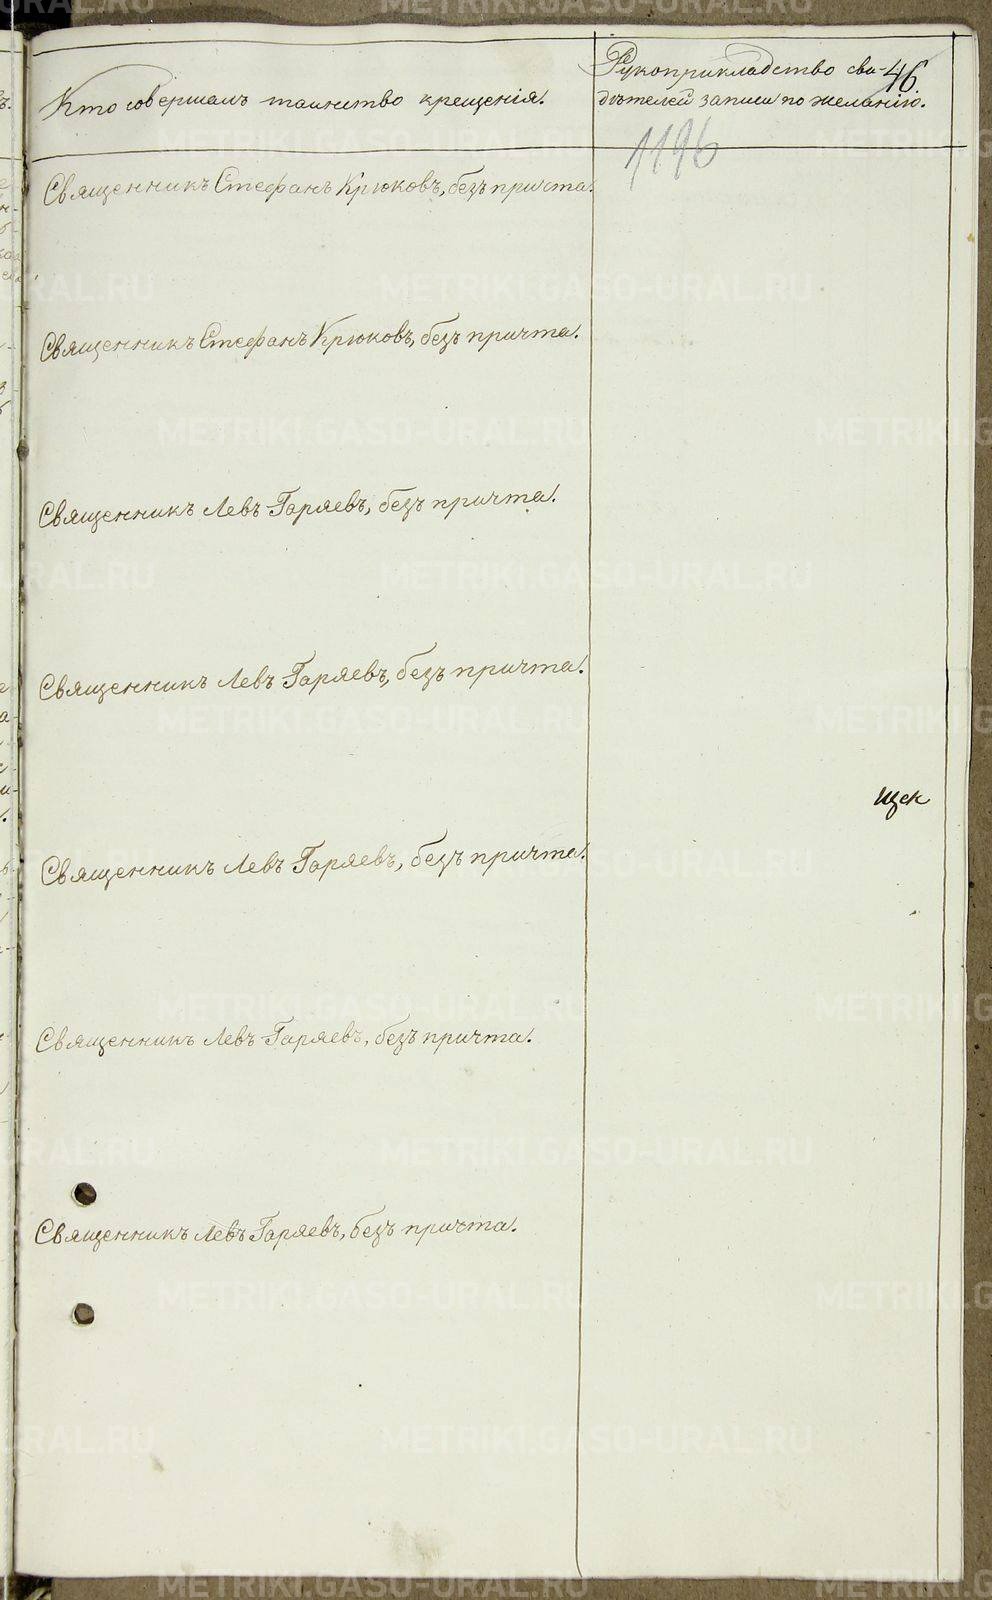 Кто совершалъ таинство крещенія.
Рукоприкладство сви-
дѣтелей записи по желанію.
46
1196
Священникъ Стефанъ Крюковъ, безъ причта.
Священникъ Стефанъ Крюковъ, безъ причта.
Священникъ Левъ Гаряевъ, безъ причта.
Священникъ Левъ Гаряевъ, безъ причта.
Священникъ Левъ Гаряевъ, безъ причта.
Священникъ Левъ Гаряевъ, безъ причта.
Священникъ Левъ Гаряевъ, безъ причта.
METRIKI.GASO-URAL.RU